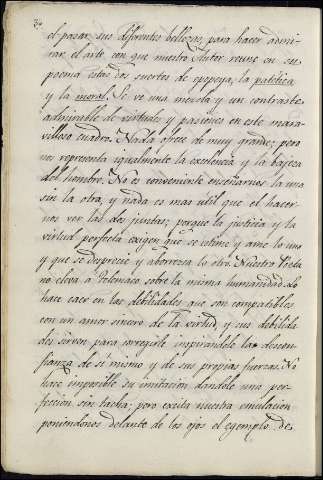 30
el pasar sus diferentes bellezas, para hacer admi-
rar el arte con que nuestro Autor reune en su
poema estas dos suertes de epopeya; la patética
y la moral. Se ve una mezcla y un contraste
admirable de virtudes y pasiones en este mara-
villoso cuadro. Nada ofrece de muy grande; pero
nos representa igualmente la excelencia y la bajeza
del hombre. No es conveniente enseñarnos la una
sin la otra, y nada es mas util que el hacer-
nos ver las dos juntas; porque la justicia y la
virtud perfecta exigen que se estime y ame lo uno
y que se desprecie y aborrezca lo otro. Nuestro Poeta
no eleva á Telemaco sobre la misma humanidad. Lo
hace caer en las debilidades que son compatibles
con un amor sincero de la virtud, y sus debilida
des sirven para corregirle inspirándole la descon-
fianza de sí mismo y de sus propias fuerzas. No
hace imposible su imitacion dandole una per-
feccion sin tacha; pero excita nuestra emulacion
poniendonos delante de los ojos el egemplo de